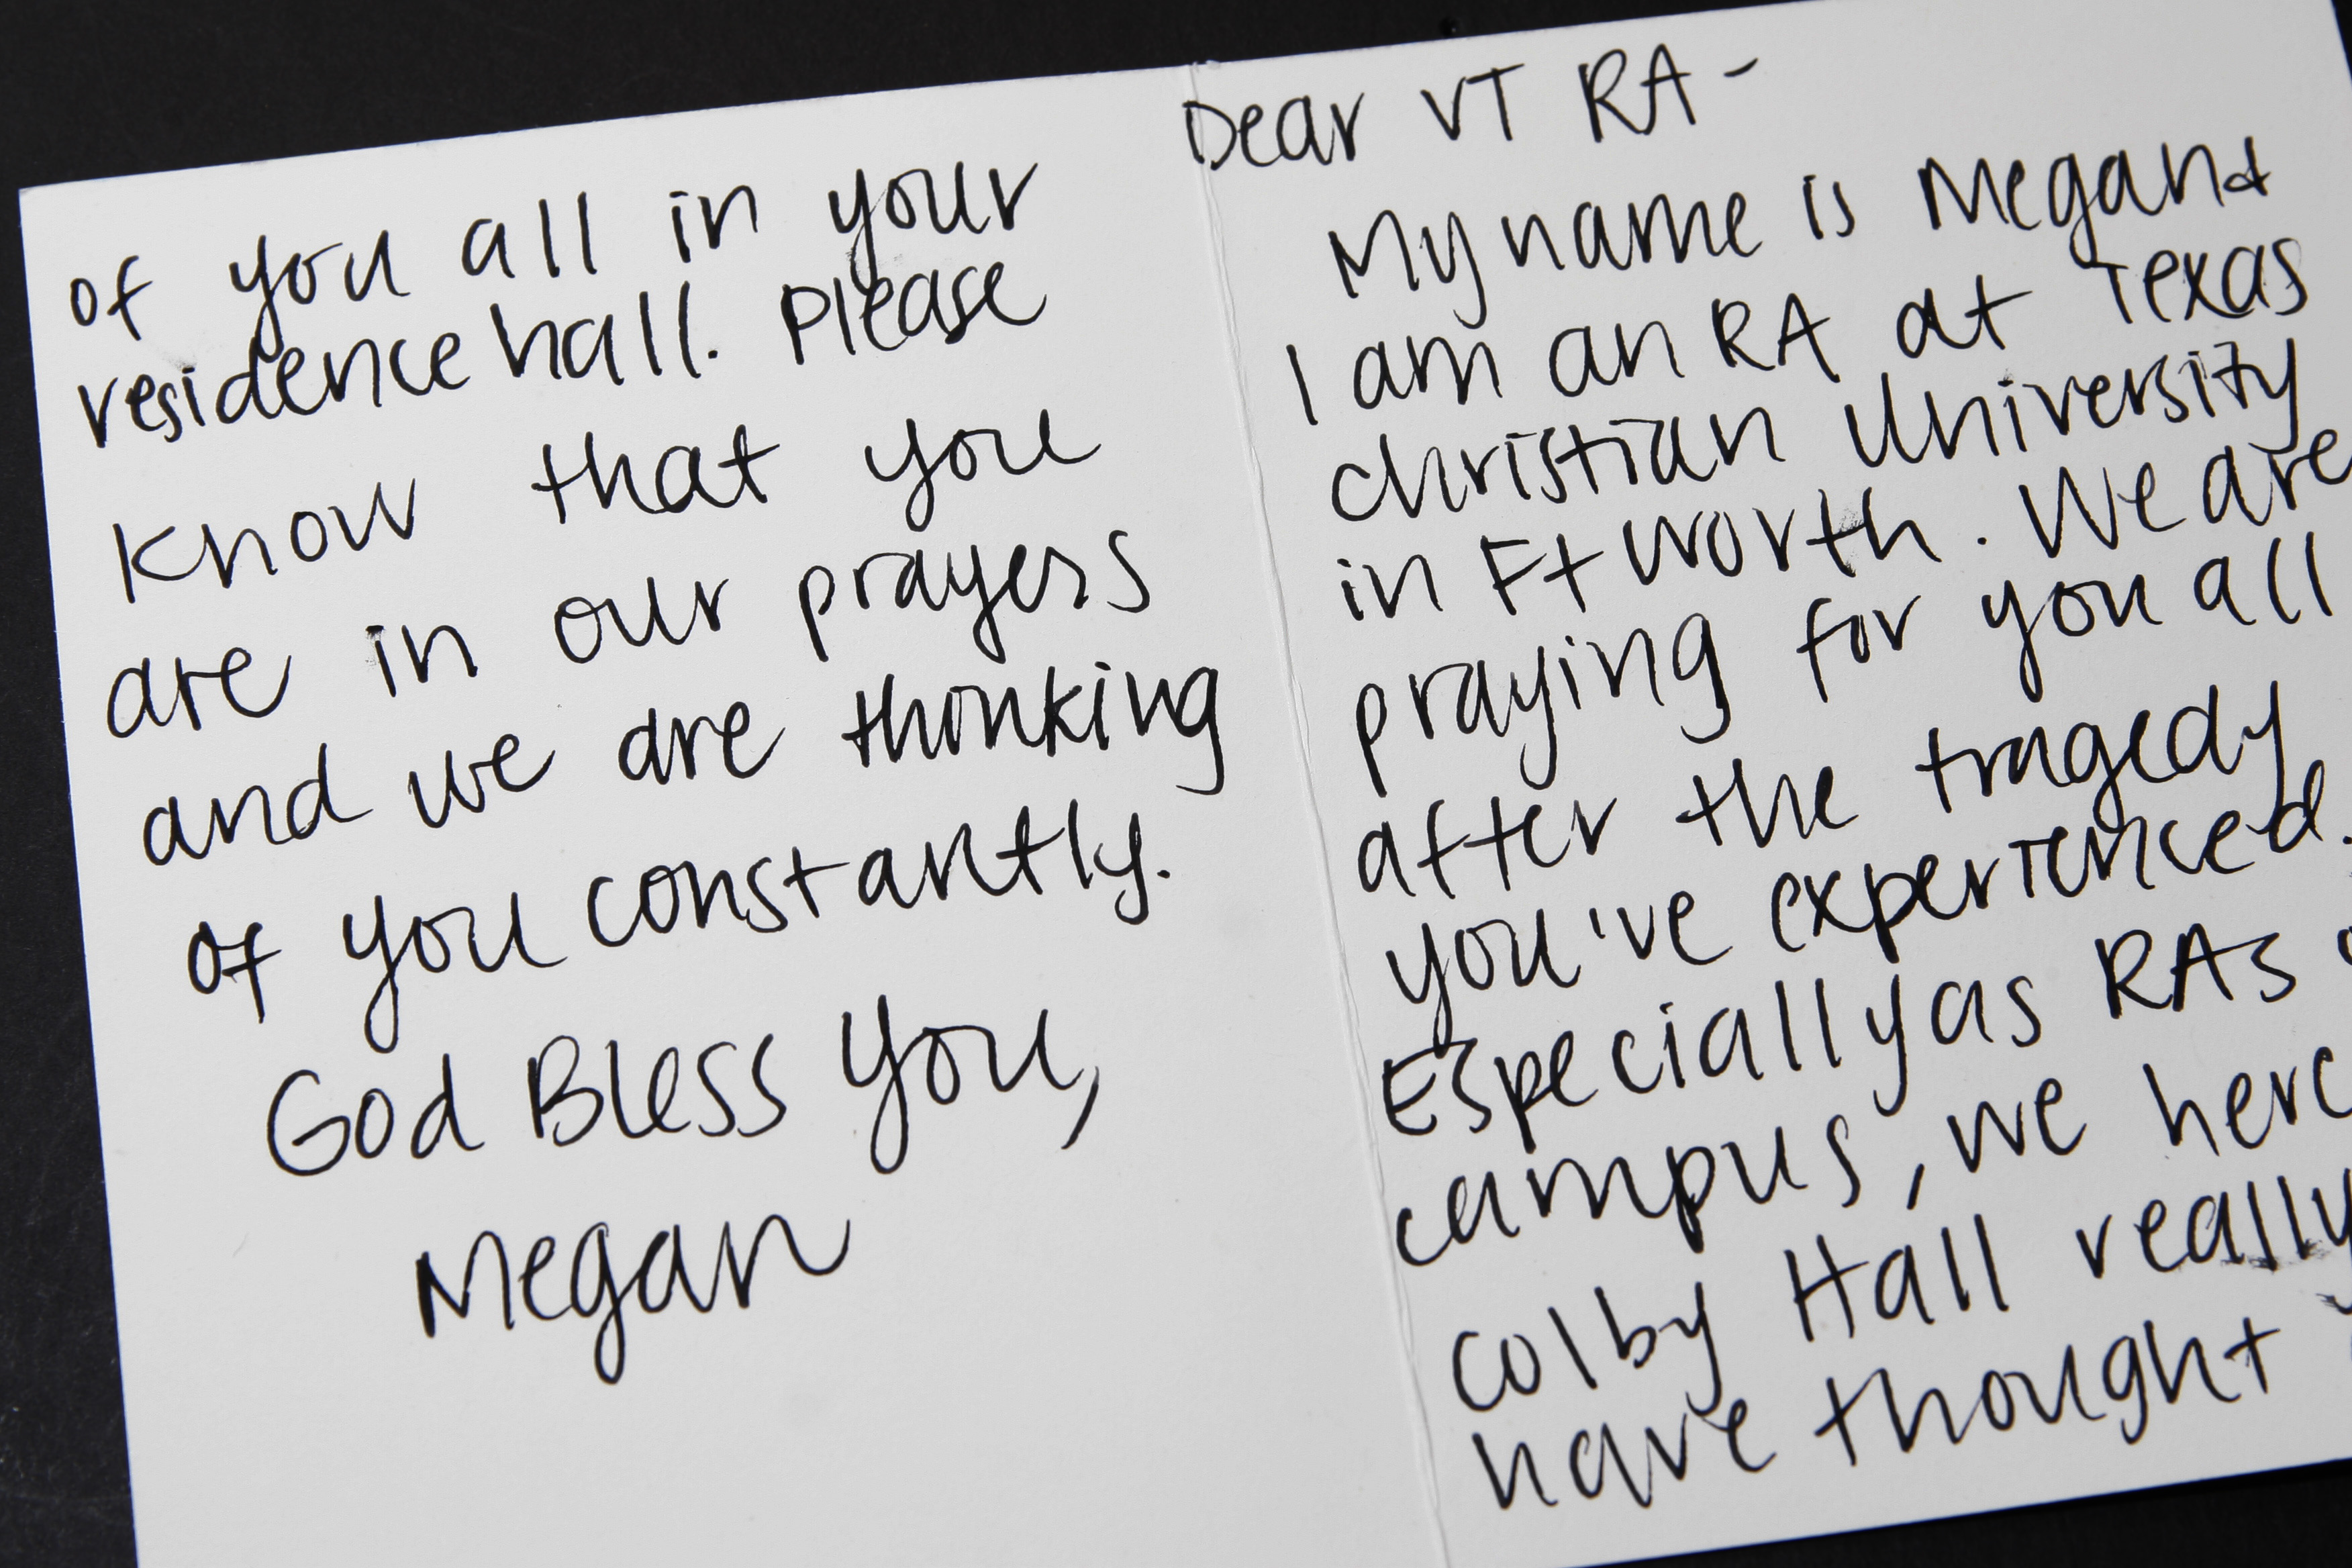 Dear VT RA -
My name is Megan &
I am an RA at Texas
Christian University
in Ft Worth. We are
praying for you all
after the tragedy
you've experienced.
Especially as RAs
campus, we here
Colby Hall really
have thought
of you all in your
residence hall. Please
Know that you
are in our prayers
and we are thinking
of you constantly.
God Bless You,
Megan